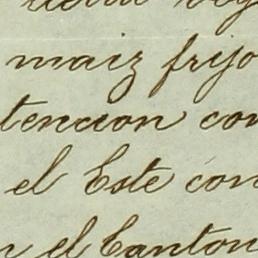 maiz frijo
tencion con
el Este con
n el Canton